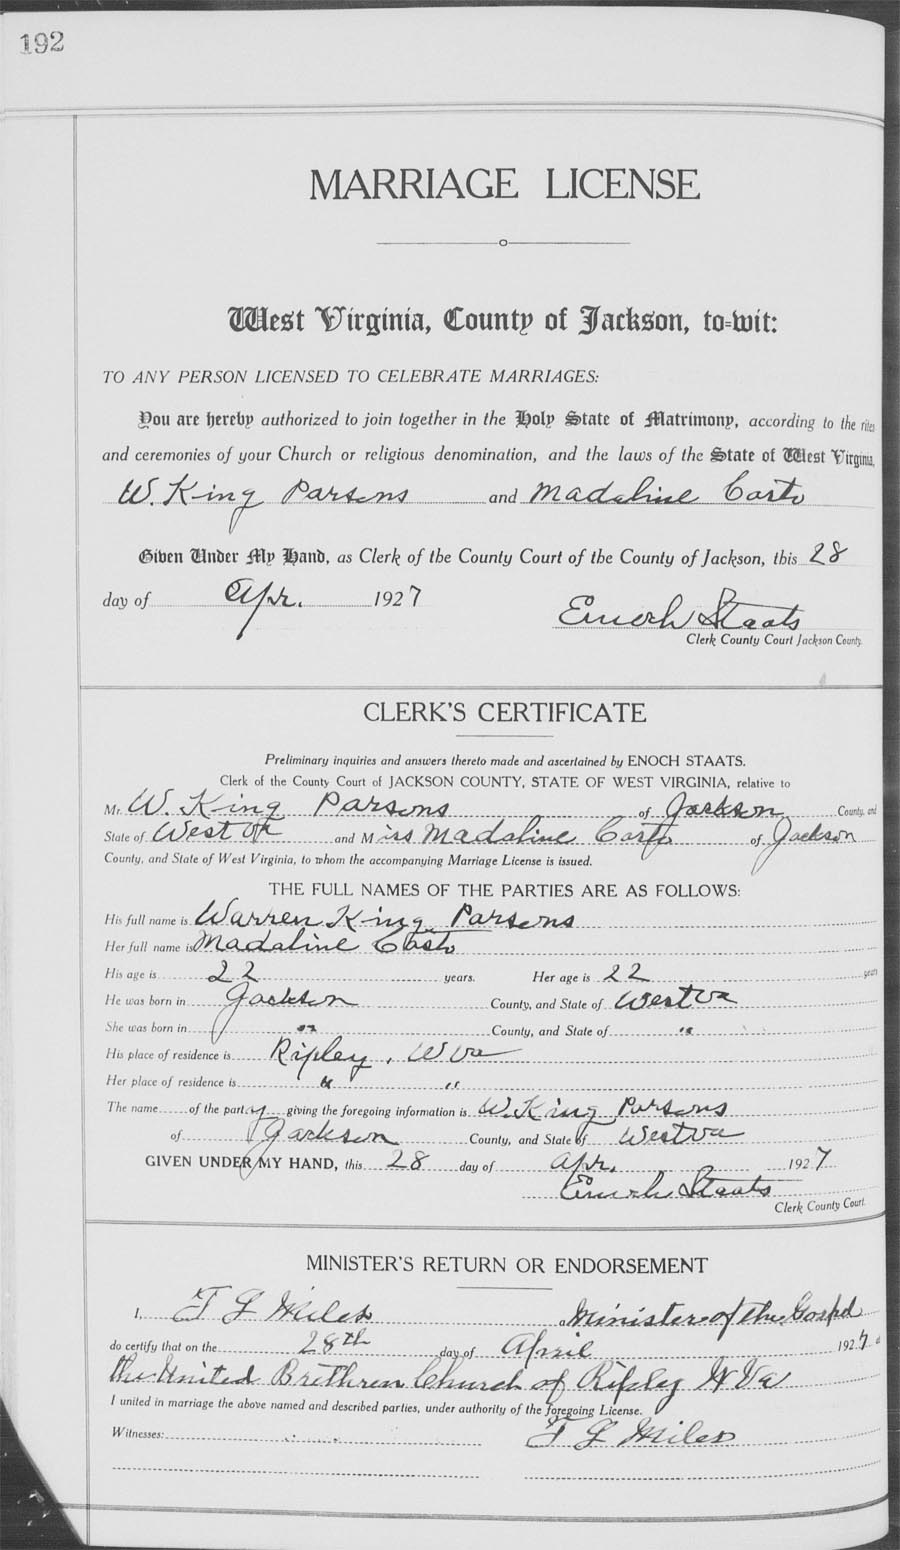 192
MARRIAGE LICENSE
West Virginia, County of Jackson, to-wit:
TO ANY PERSON LICENSED TO CELEBRATE MARRIAGES:
You are hereby authorized to join together in the Holy State of Matrimony, according to the rites
and ceremonies of your Church or religious denomination, and the laws of the State of West Virginia,
W. King Parsons and Madaline Casto
Given Under My Hand, as Clerk of the County Court of the County of Jackson, this 28
day of Apr. 1927
Enoch Staats
Clerk County Court Jackson County.
CLERK'S CERTIFICATE
Preliminary inquiries and answers thereto made and ascertained by ENOCH STAATS.
Clerk of the County Court of JACKSON COUNTY, STATE OF WEST VIRGINIA, relative to
Mr. W. King Parsons of Jackson County, and
State of West Va and Miss Madaline Casto of Jackson
County, and State of West Virginia, to whom the accompanying Marriage License is issued.
THE FULL NAMES OF THE PARTIES ARE AS FOLLOWS:
His full name is Warren King Parsons
Her full name is Madaline Casto
His age is 22 years. Her age is 22 years
He was born in Jackson County, and State of West Va
She was born in " County, and State of "
His place of residence is Ripley, W Va
Her place of residence is " "
The name of the party giving the foregoing information is W. King Parsons
of Jackson County, and State of West Va
GIVEN UNDER MY HAND, this 28 day of Apr. 1927
Enoch Staats
Clerk County Court.
MINISTER'S RETURN OR ENDORSEMENT
I, F G Miles a Minister of the Gospel
do certify that on the 28th day of April 1927 at
the United Brethren Church of Ripley W Va
I united in marriage the above named and described parties, under authority of the foregoing License.
Witnesses: F G Miles